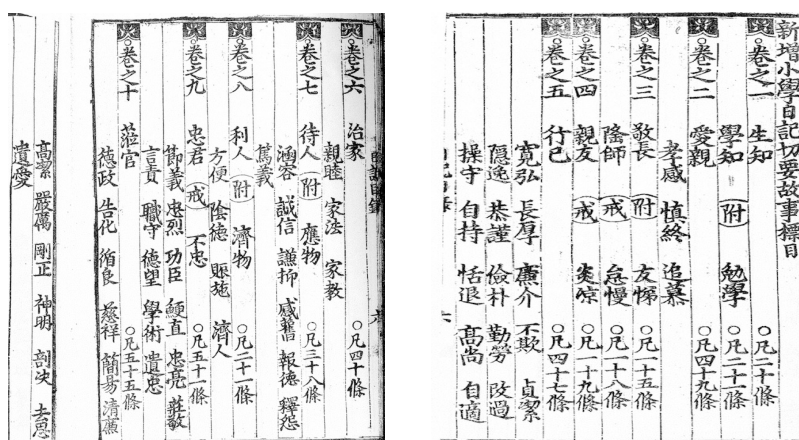 新增小學日記切要故事標目
卷之一 生知 ○凡二十條
學知 附 勉學 ○凡二十一條
卷之二 愛親 ○凡四十九條
孝感 慎終 追慕
卷之三 敬長 附 友悌 ○凡一十五條
隆師 戒 怠慢 ○凡一十八條
卷之四 親友 戒 炎凉 ○凡一十九條
卷之五 行己 ○凡四十七條
寬弘 長厚 廉介 不欺 貞潔
隱逸 恭謹 儉朴 勤勞 改過
操守 自持 恬退 高尚 自適
卷之六 治家 ○凡四十條
親睦 家法 家教
卷之七 待人 附 應物 ○凡三十八條
涵容 誠信 謙抑 感讐 報德 釋怨
篤義
卷之八 利人 附 濟物 ○凡二十一條
方便 陰德 賑施 濟人
卷之九 忠君 戒 不忠 ○凡五十一條
節義 忠烈 功臣 鯁直 忠亮 莊敬
言責 職守 德望 學術 遺忠
卷之十 蒞官 ○凡五十五條
德政 告化 循良 慈祥 簡易 清廉
高潔 嚴厲 剛正 神明 剖决 去思
遺愛